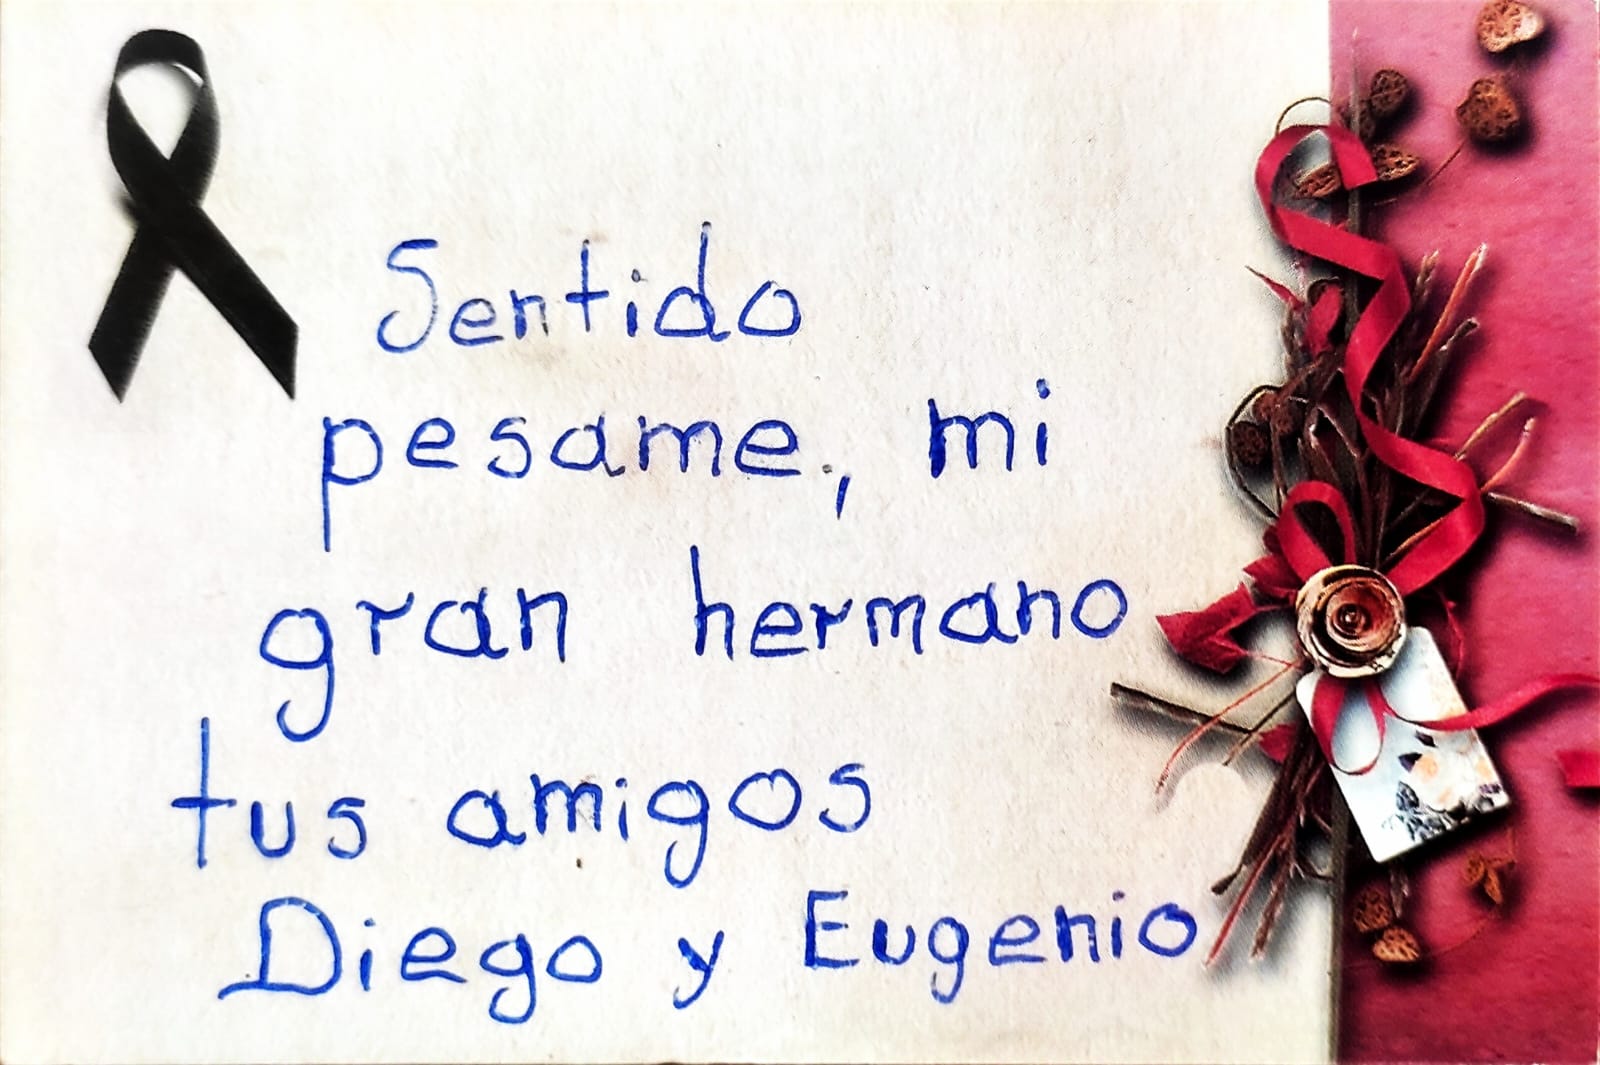 Sentido
pesame, mi
gran hermano
tus amigos
Diego y Eugenio